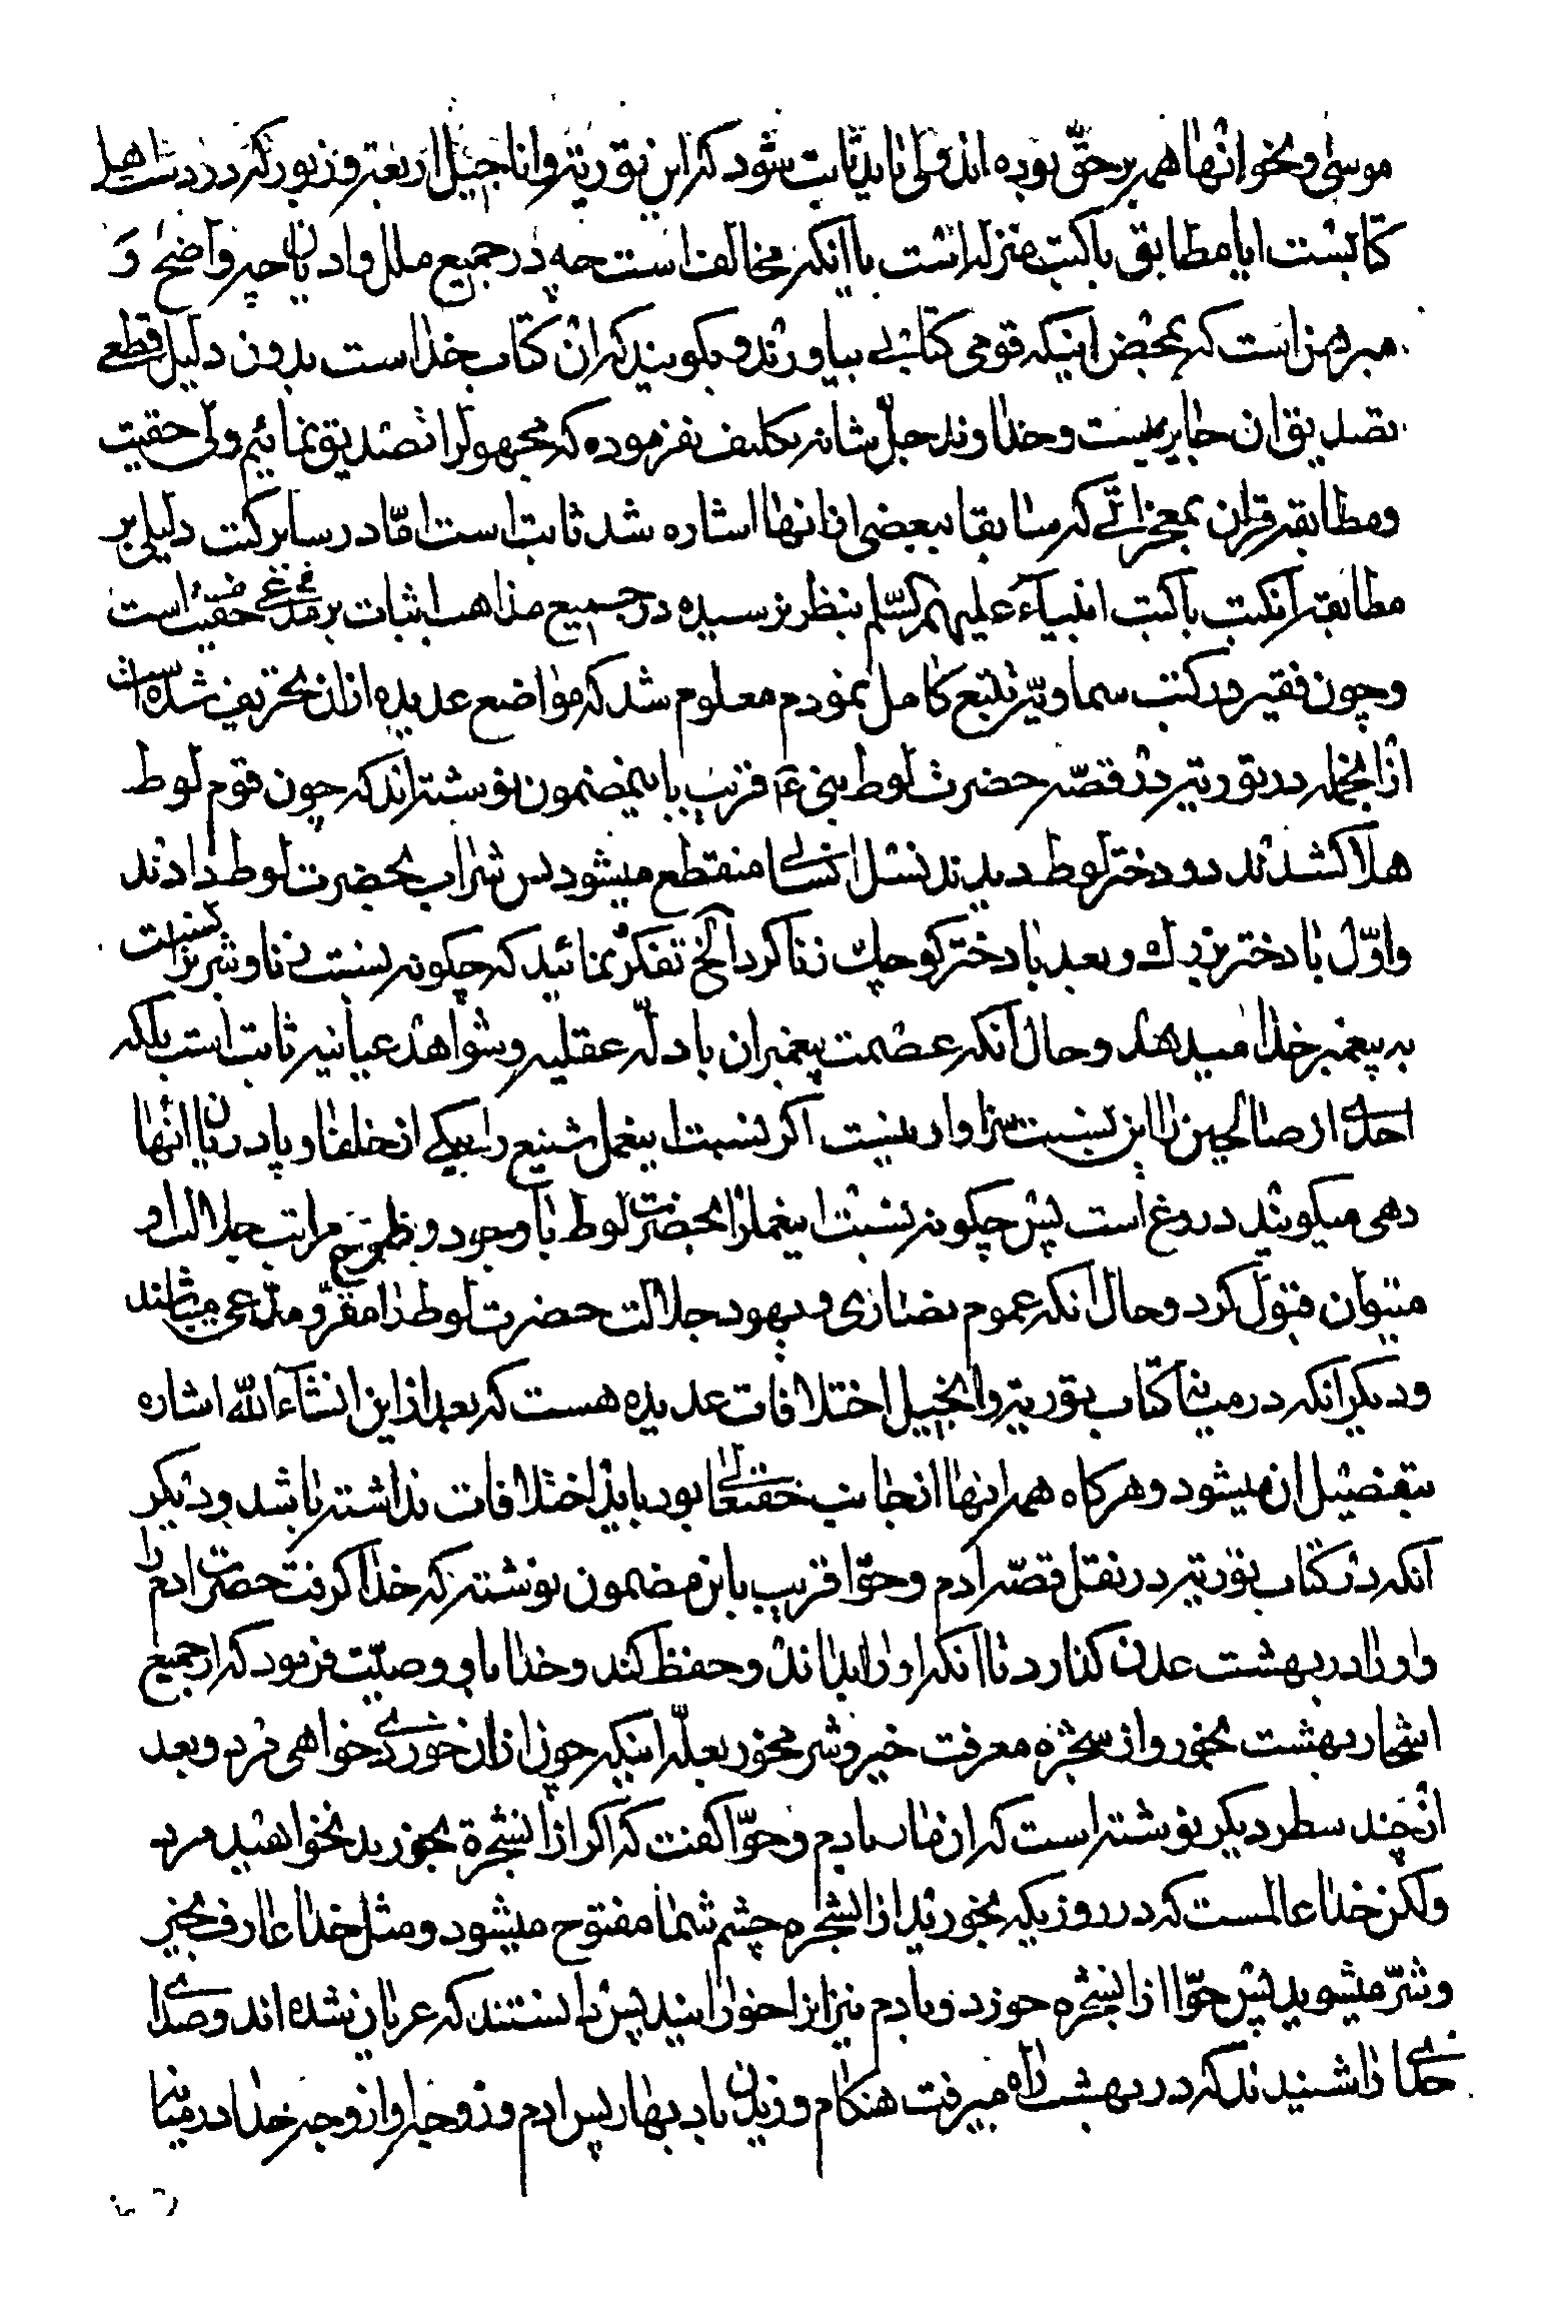 موسی و نحو انها همه بر حقّ بوده اند ولی باید ثابت شود که این توریة و اناجیل اربعه و زبور که در دست اهل
کتابست ایا مطابق با کتب منزله است یا انکه مخالف است چه در جمیع ملل و ادیان این چیز واضح و
مبرهن است که بمحض اینکه قومی کتابی بیاورند و بکویند که ان کتاب خدا است بدون دلیل قطعی
تصدیق ان جایز نیست و خداوند جلّ شانه تکلیف نفرموده که مجهول را تصدیق نمائیم ولی حقیت
و مطابقه قران بمعجزاتی که سابقا ببعضی از انها اشاره شد ثابت است امّا در سایر کتب دلیلی بر
مطابقه انکتب با کتب انبیاء علیهم السّلم بنظر نرسیده در جمیع مذاهب اثبات بر مدّعی حقیت است
و چون فقیر در کتب سماویّه تتبع کامل نمودم معلوم شد که مواضع عدیده از ان تحریف شده است
از انجمله در توریة در قصّه حضرت لوط نبی ع قریب باینمضمون نوشته اند که چون قوم لوط
هلاک شدند دو دختر لوط دیدند نسل انسانی منقطع میشود پس شراب بحضرت لوط دادند
و اوّل با دختر بزرك و بعد با دختر کوچك زنا کرد الخ تفکّر نمائید که چکونه نسبت زنا و شرب
به پیغمبر خدا میدهند و حال آنکه عصمت پیغمبران بادلّه عقلیه و شواهد عیانیه ثابت است بلکه
احدی از صالحین را این نسبت سزاوار نیست اکر نسبت اینعمل شنیع را بیکی از خلفا و پادریان انها
دهی میکویند دروغ است پس چکونه نسبت اینعمل را بحضرت لوط با وجود مراتب جلالت او
میتوان قبول کرد و حال انکه عموم نصاری و یهود جلالت حضرت لوط را مقرّ و مدّعی میباشند
و دیکر انکه در میانه کتاب توریة و انجیل اختلافات عدیده هست که بعد از این انشآء الله اشاره
بتفضیل ان میشود و هر کاه همه اینها از جانب حقتعالی بود باید اختلافات نداشته باشد و دیکر
آنکه در کتاب توریة در نقل قصّه ادم و حوّا قریب باین مضمون نوشته که خدا کرفت حضرت ادم را
و او را در بهشت عدن کذارد تا انکه او را بداند و حفظ کند و خدا باو وصیّت فرمود که از جمیع
اشجار بهشت بخور و از شجره معرفت خیر و شر مخور بعلّه اینکه چون از ان خوردی خواهی مرد و بعد
از چند سطر دیکر نوشته است که ان مار بادم و حوّا کفت که اکر از انشجرة بخورید نخواهید مرد
ولکن خدا عالمست که در روزیکه بخورید از انشجره چشم شما مفتوح میشود و مثل خدا عارف بخیر
و شرّ میشوید پس حوّا از انشجره خورد و بادم نیز خورانید پس دانستند که عریان شده اند و صدای
خدا را شنیدند که در بهشت راه میرفت هنکام وزیدن باد بهار پس ادم و زوجه او از وجه خدا در میانه